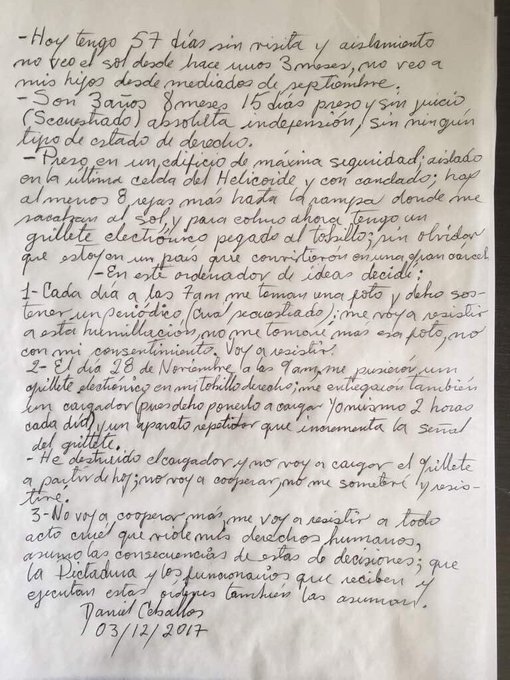 -Hoy tengo 57 días sin visita y aislamiento
no veo el sol desde hace unos 3 meses, no veo a
mis hijos desde mediados de septiembre.
-Son 3 años 8 meses 15 días preso y sin juicio
(Secuestrado) absoluta indefensión, sin ningún
tipo de estado de derecho.
-Preso en un edificio de máxima seguridad; aislado
en la última celda del Helicoide y con candado; hay
al menos 8 rejas más hasta la rampa donde me
sacaban al sol, y para colmo ahora tengo un
grillete electrónico pegado al tobillo; sin olvidar
que estoy en un país que convirtieron en una gran cárcel
-En este ordenador de ideas decidí:
1-Cada día a las 7am me toman una foto y debo sos-
tener un periódico (cual secuestrado); me voy a resistir
a esta humillación, no me tomaré mas esa foto, no
con mi consentimiento. Voy a resistir!
2- El día 28 de Noviembre a las 9am, me pusieron un
grillete electrónico en mi tobillo derecho; me entregaron también
un cargador (pues debo ponerlo a cargar yo mismo 2 horas
cada día) y un aparato repetidor que incrementa la señal
del grillete.
-He destruido el cargador y no voy a cargar el grillete
a partir de hoy; no voy a cooperar, no me someteré y resis-
tiré.
3-No voy a cooperar más, me voy a resistir a todo
acto cruel que viole mis derechos humanos,
asumo las consecuencias de estas de decisiones; que
la Dictadura y los funcionarios que reciben y
ejecutan estas ordenes también las asuman.
Daniel Ceballos
03/12/2017